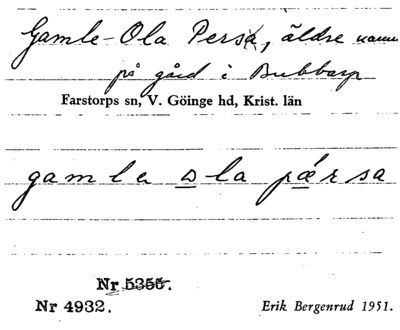 Gamle-Ola Persa, äldre namn
på gård i Bubbarp
Farstorps sn, V. Göinge hd, Krist. län
gamla ola pǽrsa
Nr 5355.
Nr 4932.
Erik Bergenrud 1951.